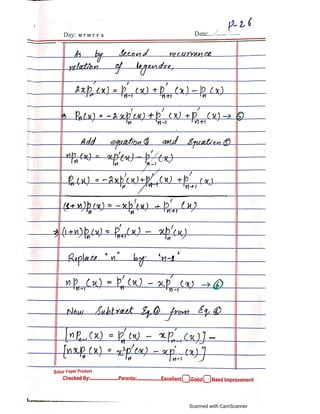 P-26
Day: M T W T F S Date: __/__/__
As by second recurrence
relation of legendre,
2xp'ₙ(x) = p'ₙ₋₁(x) + p'ₙ₊₁(x) - pₙ(x)
⇒ Pₙ(x) = -2xp'ₙ(x) + p'ₙ₋₁(x) + p'ₙ₊₁(x) → ⑤
Add equation ⑤ and Equation ①
npₙ(x) = xp'ₙ(x) - p'ₙ₋₁(x)
Pₙ(x) = -2xp'ₙ(x) + p'ₙ₋₁(x) + p'ₙ₊₁(x)
(1+n)pₙ(x) = -xp'ₙ(x) + p'ₙ₊₁(x)
⇒ (1+n)pₙ(x) = p'ₙ₊₁(x) - xp'ₙ(x)
Replace "n" by "n-1"
npₙ₋₁(x) = p'ₙ(x) - xp'ₙ₋₁(x) → ⑥
Now Subtract Eq. from Eq. ⑥
[npₙ₋₁(x) = p'ₙ(x) - xp'ₙ₋₁(x)] -
[nxpₙ(x) = x²p'ₙ(x) - xp'ₙ₋₁(x)]
Paper Product
Checked By: Parents: Excellent Good Need Improvement
Scanned with CamScanner